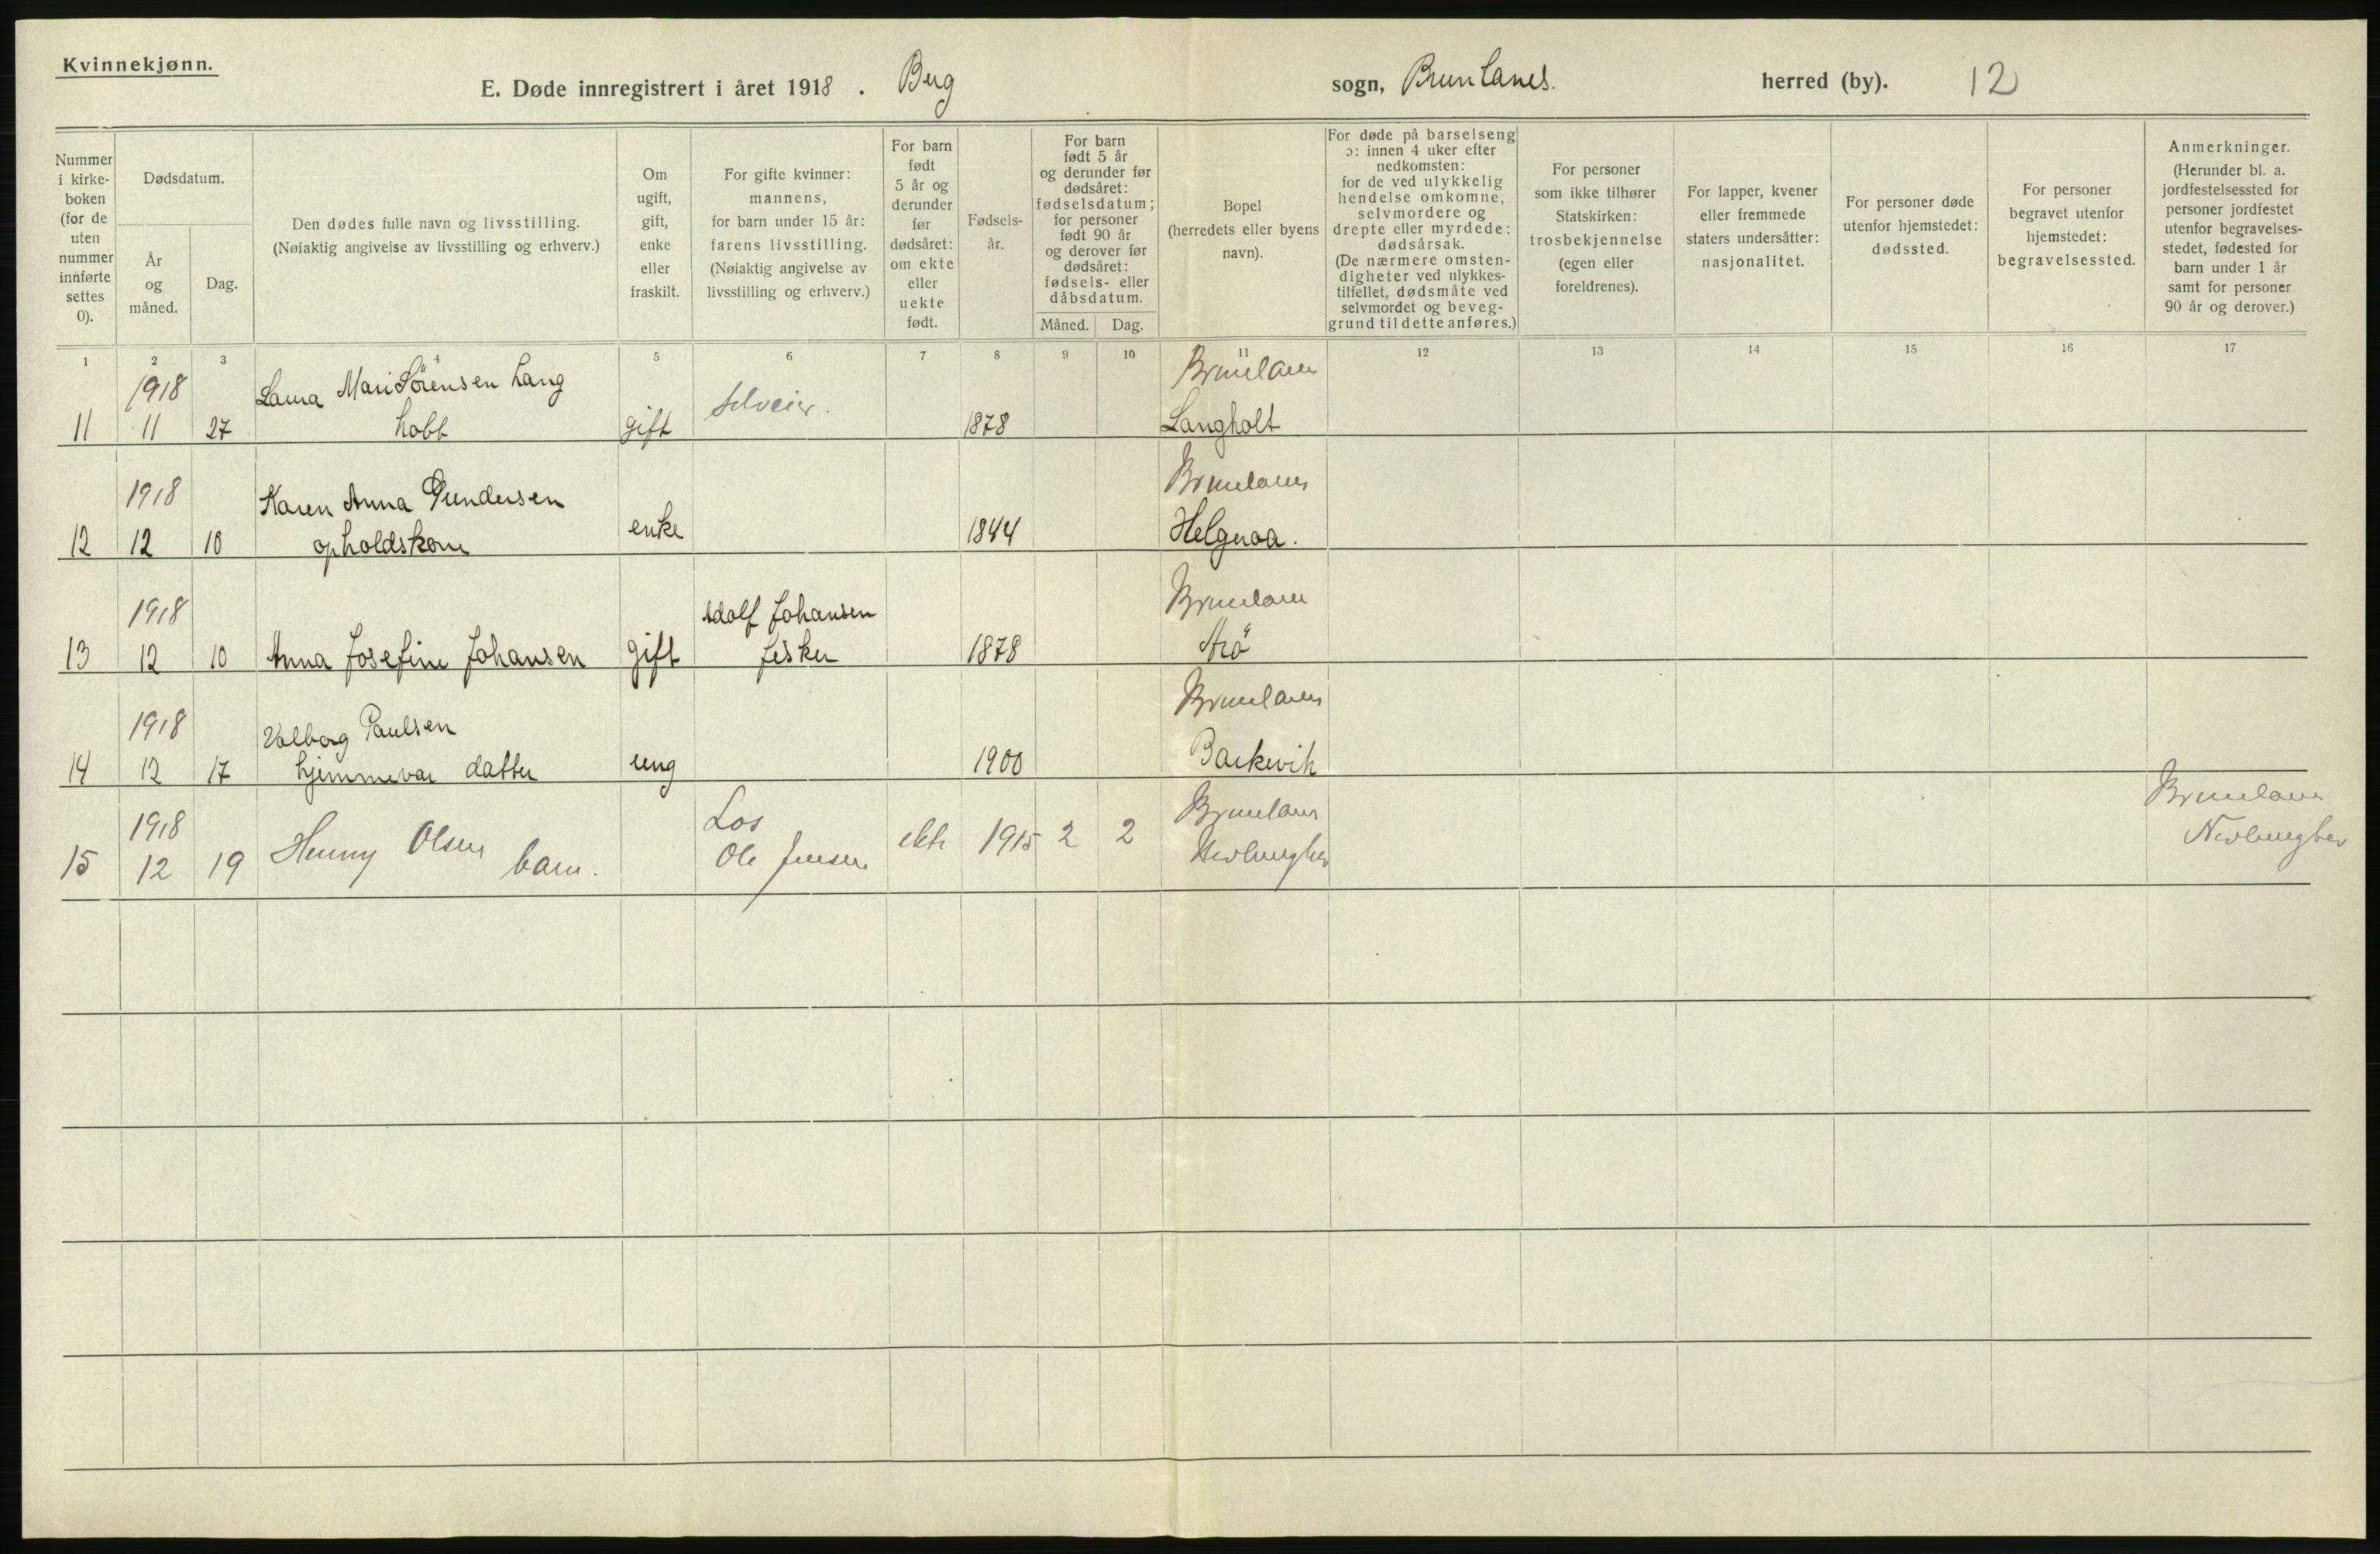 Kvinnekjønn.
E. Døde innregistrert i året 1918. Berg sogn, Brunlanes. herred (by). 12
Nummer i kirke- boken (for de uten nummer innførte settes 0).
Dødsdatum.
År og måned.
Dag.
Den dødes fulle navn og livsstilling.
(Nøiaktig angivelse av livsstilling og erhverv.)
Om ugift, gift, enke eller fraskilt.
For gifte kvinner: mannens, for barn under 15 år: farens livsstilling. (Nøiaktig angivelse av livsstilling og erhverv.)
For barn født 5 år og derunder før dødsåret: om ekte eller uekte født.
Fødsels- år.
For barn født 5 år og derunder før dødsåret: fødselsdatum; for personer født 90 år og derover før dødsåret: fødsels- eller dåbsdatum.
Måned. Dag.
Bopel (herredets eller byens navn).
For døde på barselseng ɔ: innen 4 uker efter nedkomsten: for de ved ulykkelig hendelse omkomne, selvmordere og drepte eller myrdede: dødsårsak. (De nærmere omsten- digheter ved ulykkes- tilfellet, dødsmåte ved selvmordet og beveg- grund til dette anføres.)
For personer som ikke tilhører Statskirken: trosbekjennelse (egen eller foreldrenes).
For lapper, kvener eller fremmede staters undersåtter: nasjonalitet.
For personer døde utenfor hjemstedet: dødssted.
For personer begravet utenfor hjemstedet: begravelsessted.
Anmerkninger. (Herunder bl. a. jordfestelsessted for personer jordfestet utenfor begravelses- stedet, fødested for barn under 1 år samt for personer 90 år og derover.)
1 2 3 4 5 6 7 8 9 10 11 12 13 14 15 16 17
1918 Laura Mari Sörensen Lang selveier. Brunlanes
11 11 27 holt gift 1878 Langholt
1918 Karen Anna Gundersen Brunlanes
12 12 10 opholdskone enke 1844 Helgeroa.
1918 Adolf Johansen Brunlanes
13 12 10 Anna Josefine Johansen gift fisker 1878 Arö
1918 Valborg Paulsen Brunlanes
14 12 17 hjemmevær datter ung 1900 Barkevik
1918 Los Brunlanes Brunlanes
15 12 19 Henny Olsen barn. Ole Jensen ekte 1915 2 2 Nevlunghav Nevlunghav